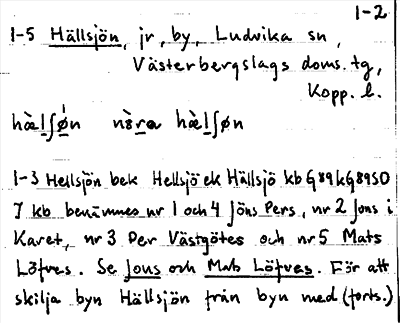 1-2
1-5 Hällsjön, jr, by, Ludvika sn,
Västerbergslags doms. tg,
Kopp. l.
hæ̀lʃø̀n nö̀ra hæ̀lʃøn
1-3 Hellsjön bek Hellsjö ek Hällsjö kb G89kG89SO
I kb benämnes nr 1 och 4 Jöns Pers, nr 2 Jons i
Karet, nr 3 Per Västgötes och nr 5 Mats
Löfves. Se Jons och Mats Löfves. För att
skilja byn Hällsjön från byn med (forts.)